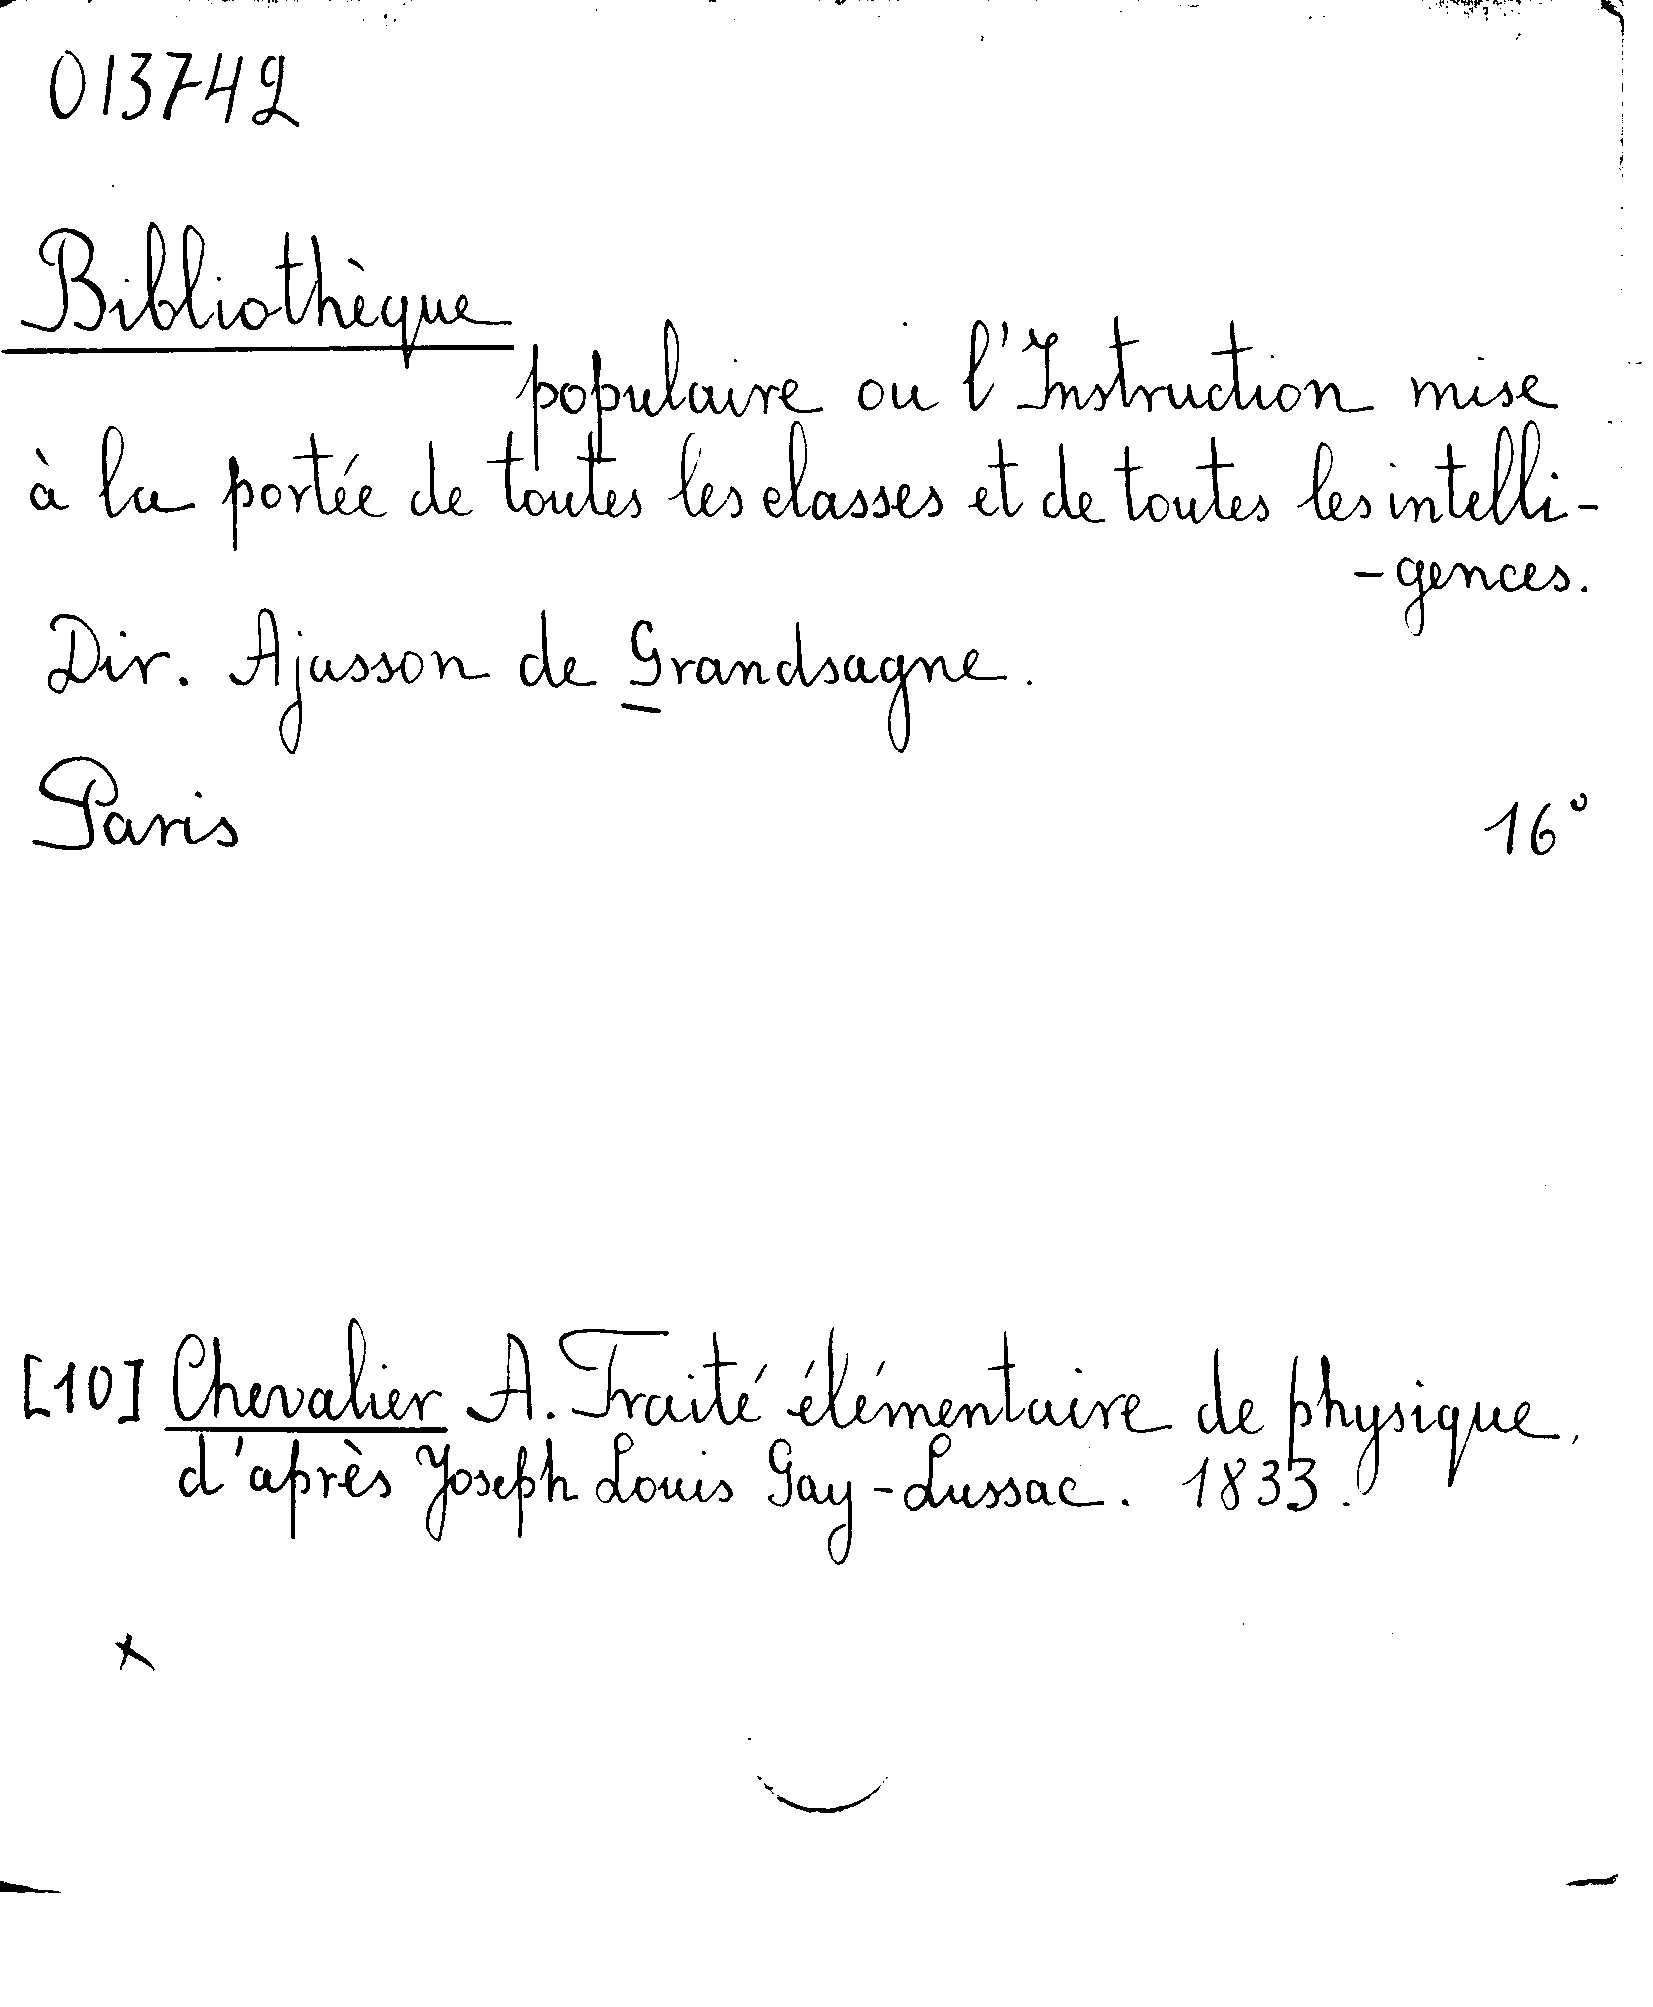 013742
Bibliothèque
populaire ou l'Instruction mise
à la portée de toutes les classes et de toutes les intelli-
-gences.
Dir. Ajasson de Grandsagne.
Paris 16°
[10] Chevalier A. Traité élémentaire de physique,
d'après Joseph Louis Gay-Lussac. 1833.
x